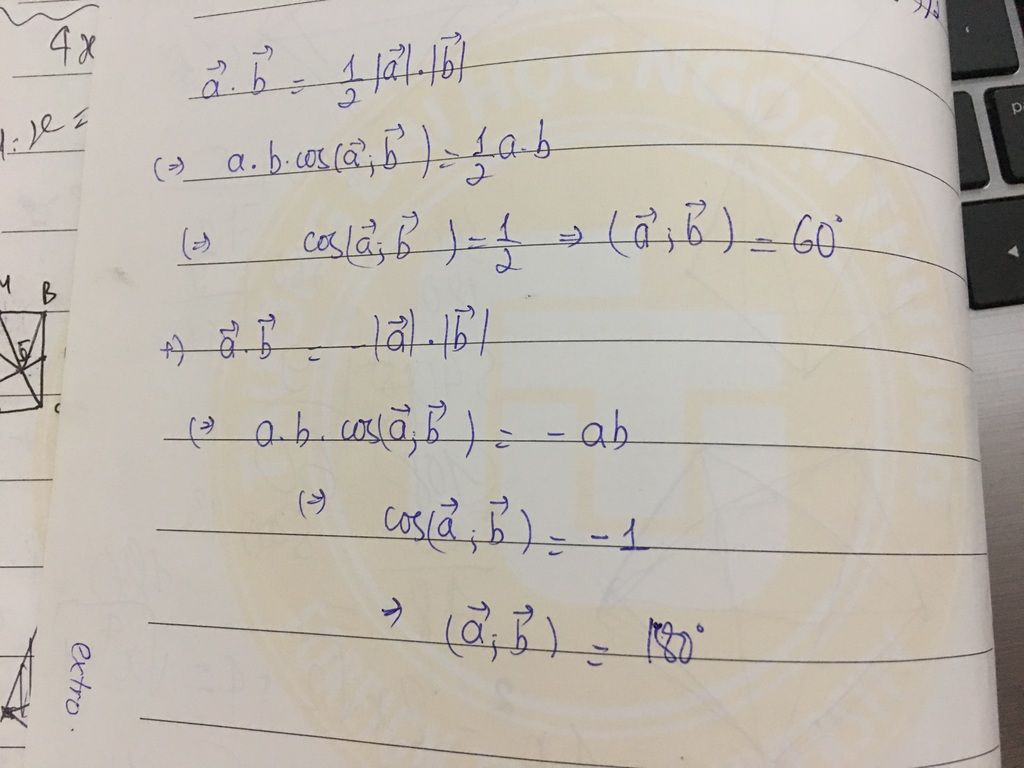 4x
$\vec{a}.\vec{b} = \frac{1}{2}|\vec{a}|.|\vec{b}|$
(=) a.b.cos($\vec{a}$;$\vec{b}$) = $\frac{1}{2}$a.b
(=) cos($\vec{a}$;$\vec{b}$) = $\frac{1}{2}$ ⇒ ($\vec{a}$;$\vec{b}$) = 60°
+) $\vec{a}.\vec{b}$ = -|$\vec{a}$|.|$\vec{b}$|
(=) a.b.cos($\vec{a}$;$\vec{b}$) = - ab
(=) cos($\vec{a}$;$\vec{b}$) = -1
⇒ ($\vec{a}$;$\vec{b}$) = 180°
B
extro.